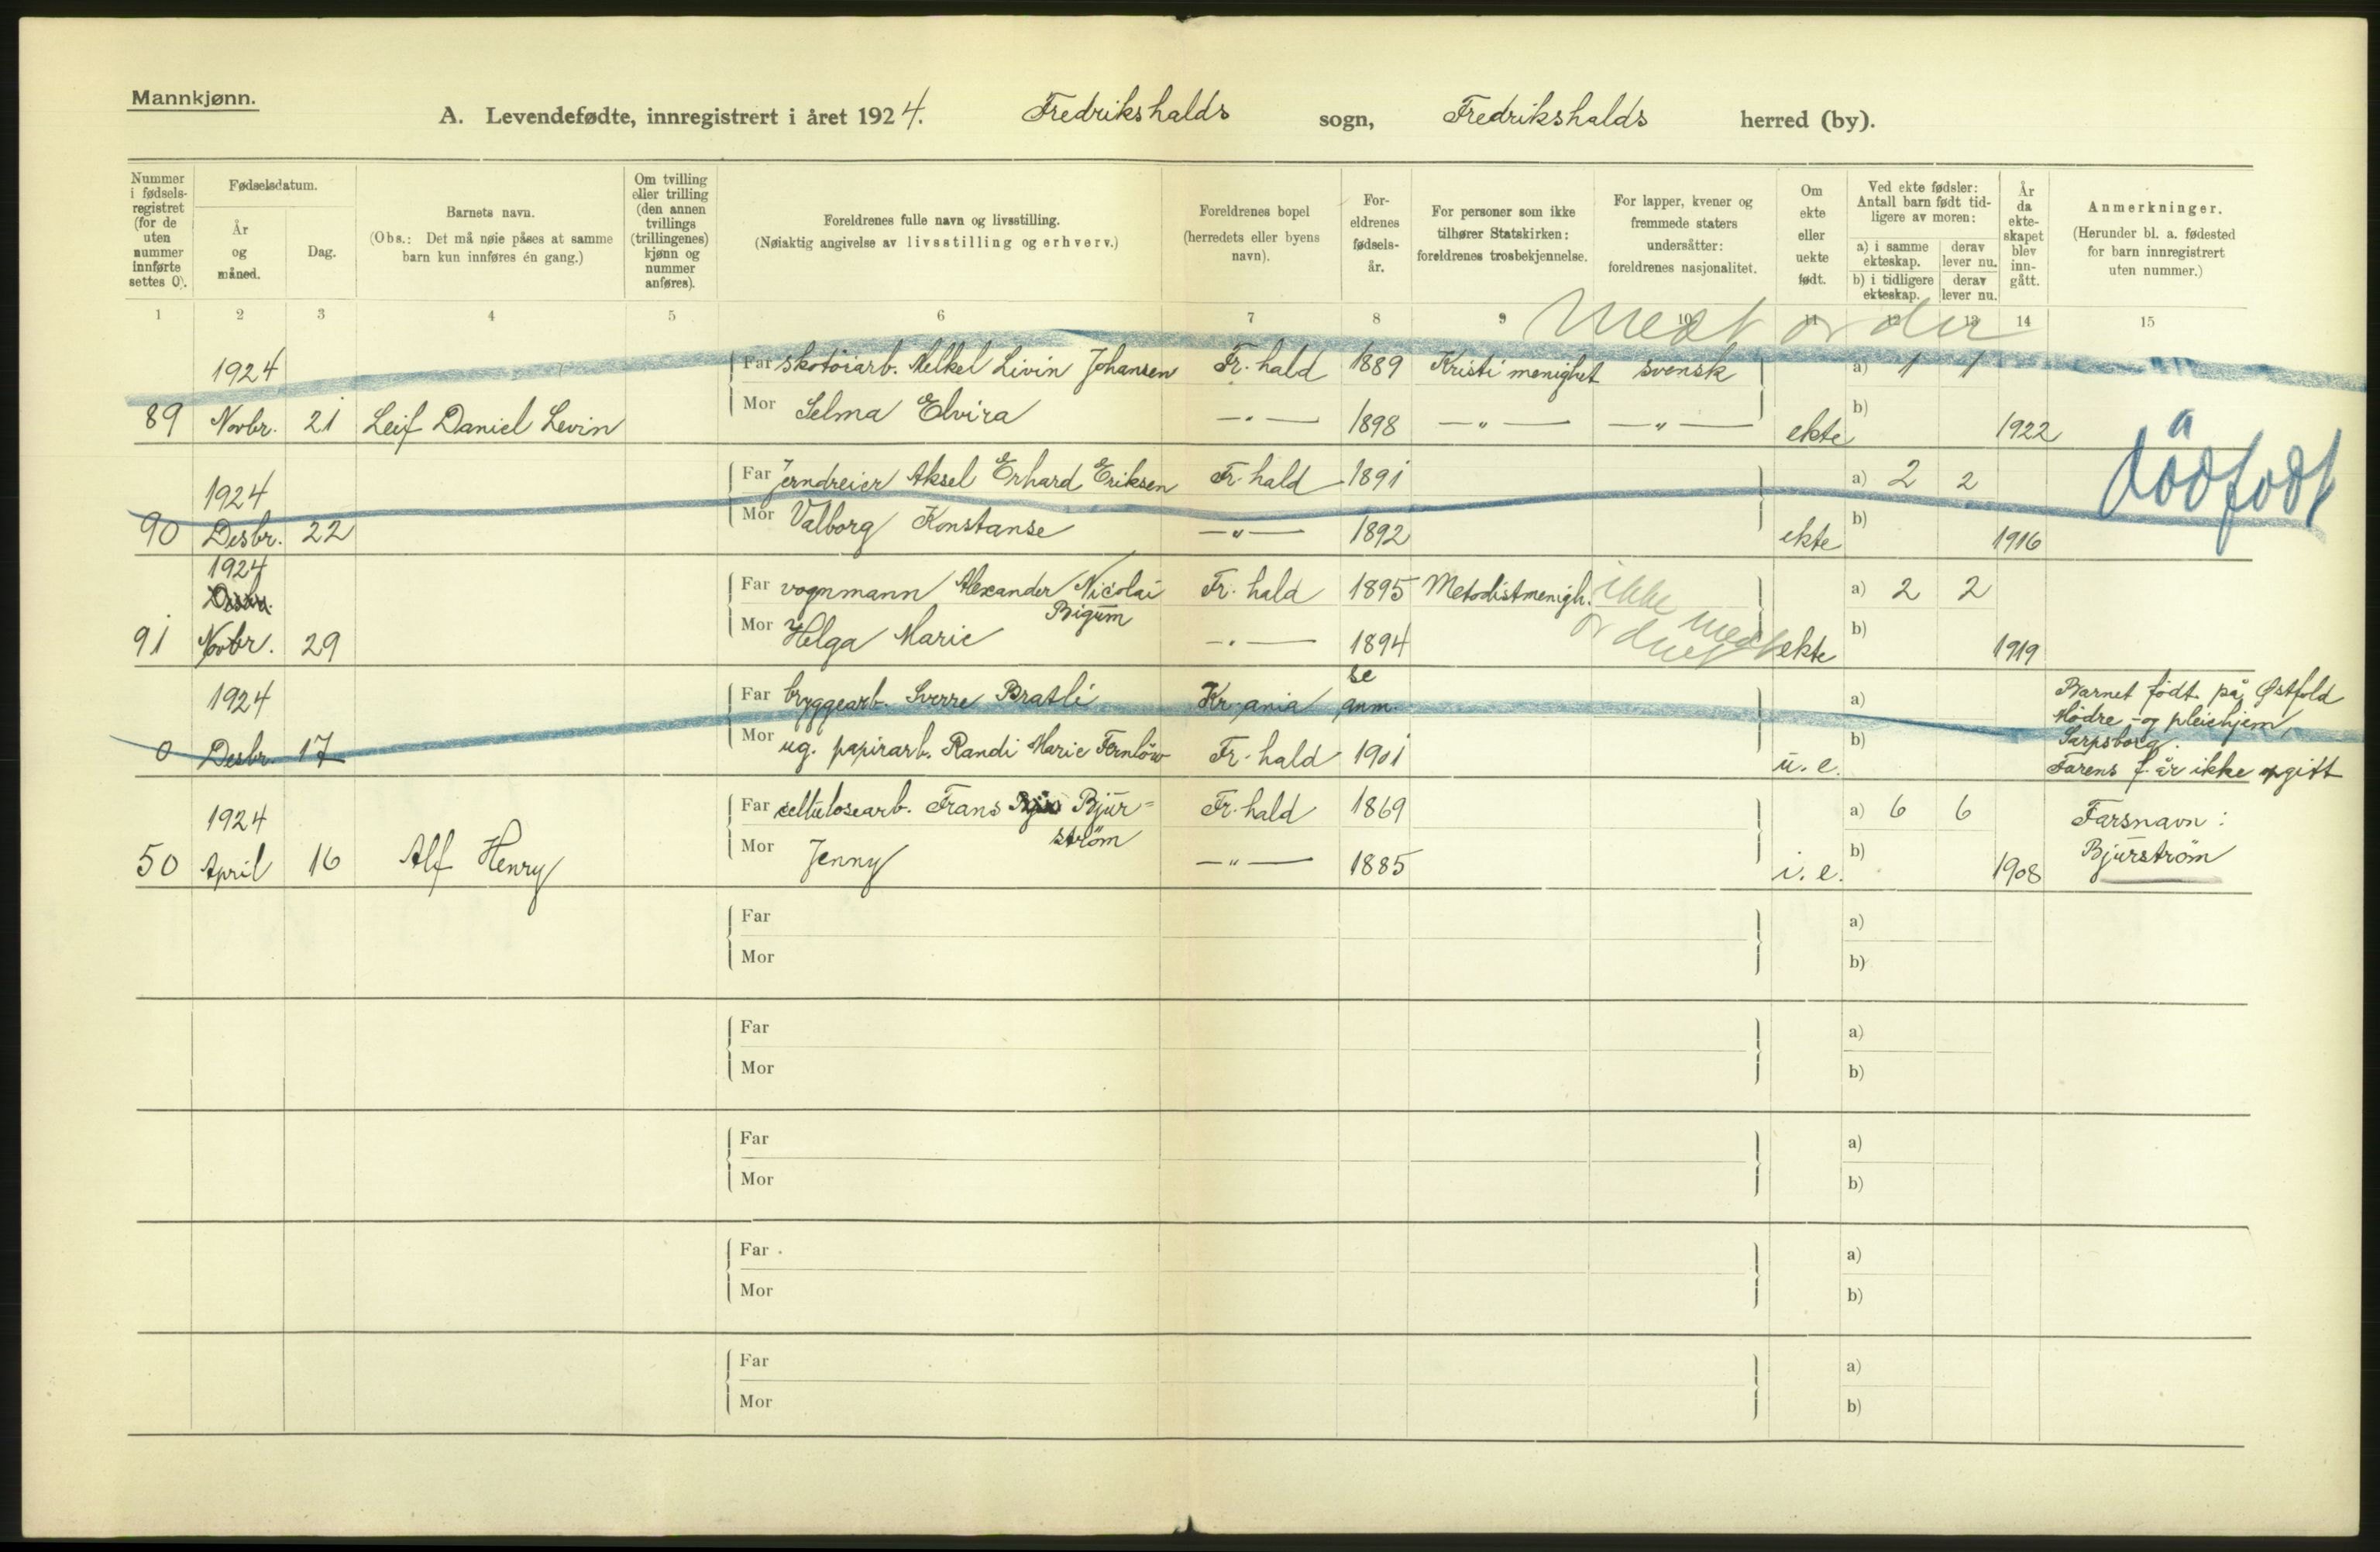 Mannkjønn.
A. Levendefødte, innregistrert i året 1924. Fredrikshalds sogn, Fredrikshalds herred (by).
Nummer i fødselsregistret (for de uten nummer innførte settes 0).
Fødselsdatum.
År og måned.
Dag.
Barnets navn.
(Obs.: Det må nøie påses at samme barn kun innføres én gang.)
Om tvilling eller trilling (den annen tvillings (trillingenes) kjønn og nummer anføres).
Foreldrenes fulle navn og livsstilling.
(Nøiaktig angivelse av livsstilling og erhverv.)
Foreldrenes bopel (herredets eller byens navn).
Foreldrenes fødselsår.
For personer som ikke tilhører Statskirken: foreldrenes trosbekjennelse.
For lapper, kvener og fremmede staters undersåtter: foreldrenes nasjonalitet.
Om ekte eller uekte født.
Ved ekte fødsler: Antall barn født tidligere av moren:
a) i samme ekteskap. derav lever nu.
b) i tidligere ekteskap. derav lever nu.
År da ekteskapet blev inngått.
Anmerkninger.
(Herunder bl. a. fødested for barn innregistrert uten nummer.)
1 2 3 4 5 6 7 8 9 10 11 12 13 14 15
1924 Far skotöiarb. Melkel Livin Johansen Fr. hald 1889 Kristi menighet svensk a) 1 1
89 Novbr. 21 Leif Daniel Levin Mor Selma Elvira —"— 1898 —"— —"— ekte b) 1922
1924 Far Jerndreier Aksel Erhard Eriksen Fr. hald 1891 a) 2 2 dödfødt
90 Desbr. 22 Mor Valborg Konstanse —"— 1892 ekte b) 1916
1924 Far vognmann Alexander Nicolai Bigum Fr. hald 1895 Metodistmenigh. ikke med a) 2 2
91 Novbr. 29 Mor Helga Marie —"— 1894 ekte b) 1919
1924 Far bryggearb. Sverre Bratli Kr.ania se anm. a) Barnet født på Østfold
Mödre- og pleiehjem,
0 Desbr. 17 Mor ug. papirarb. Randi Marie Fernlöw Fr. hald 1901 u. e. b) Sarpsborg.
Farens f. år ikke opgitt
1924 Far cellulosearb. Frans Bjurström Fr. hald 1869 a) 6 6 Farsnavn:
50 April 16 Alf Henry Mor Jenny —"— 1885 i. e. b) 1908 Bjurström
Far a)
Mor b)
Far a)
Mor b)
Far a)
Mor b)
Far a)
Mor b)
Far a)
Mor b)